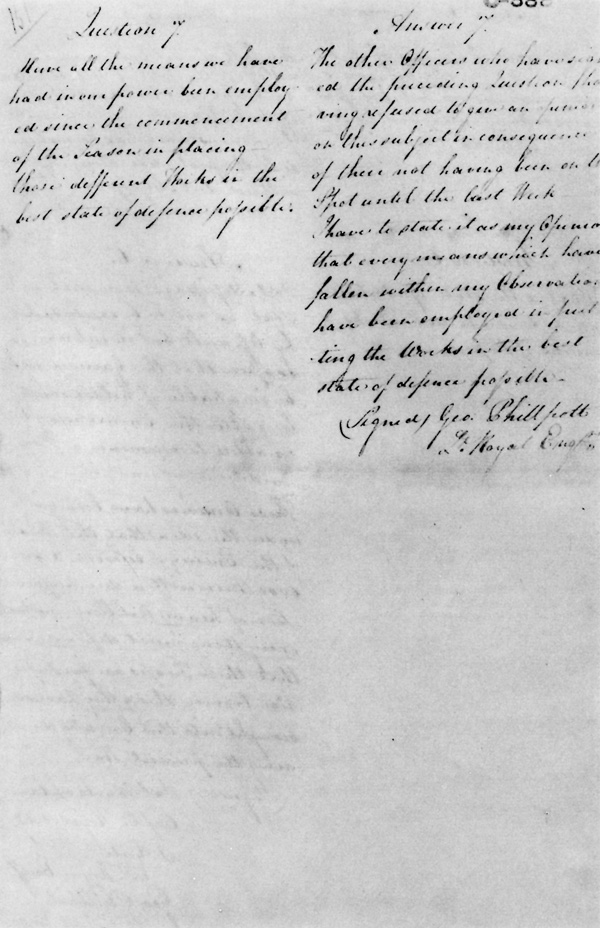 Question 7.
Have all the means we have
had in our power been employ
ed since the commencement
of the Season in placing
those different Works in the
best state of defence possible.
Answer 7.
The other Officers who have sign
ed the preceding Question ha
ving refused to give an opinion
on this subject in consequence
of their not having been on the
Spot until the last Week
I have to state it as my Opinion
that every means which have
fallen within my Observation
have been employed in put
ting the Works in the best
state of defence possible
(Signed) Geo. Phillpotts
Lt. Royal Engrs